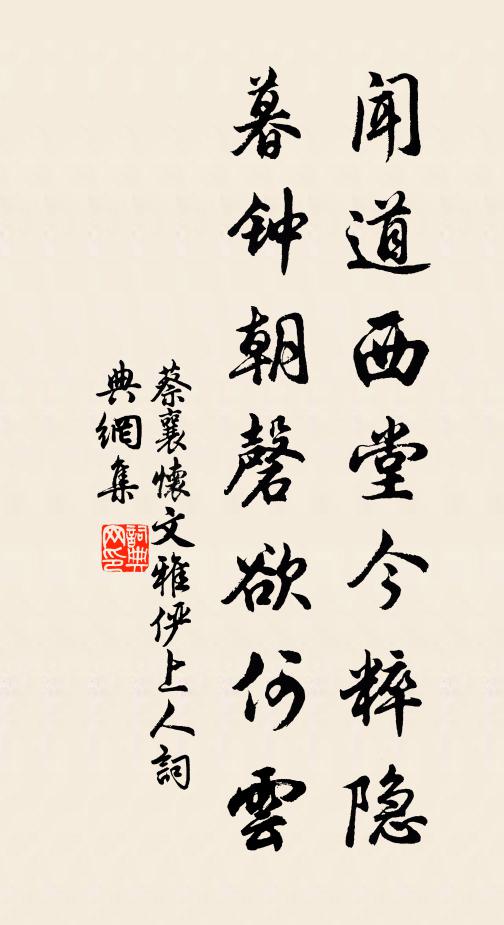 闻道西堂今粹隐
暮钟朝磬欲何雲
蔡襄懷文雅俨上人詞
典網集
詞典网印